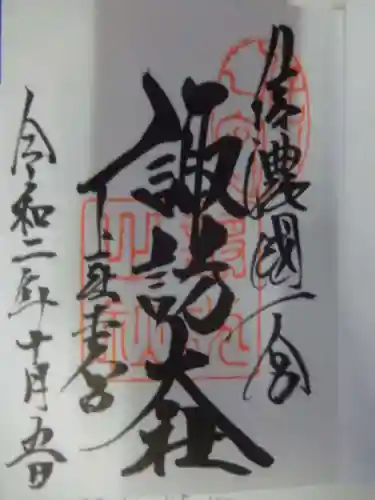 信濃國一宮
諏訪大社
下社秋宮
令和二年十月五日